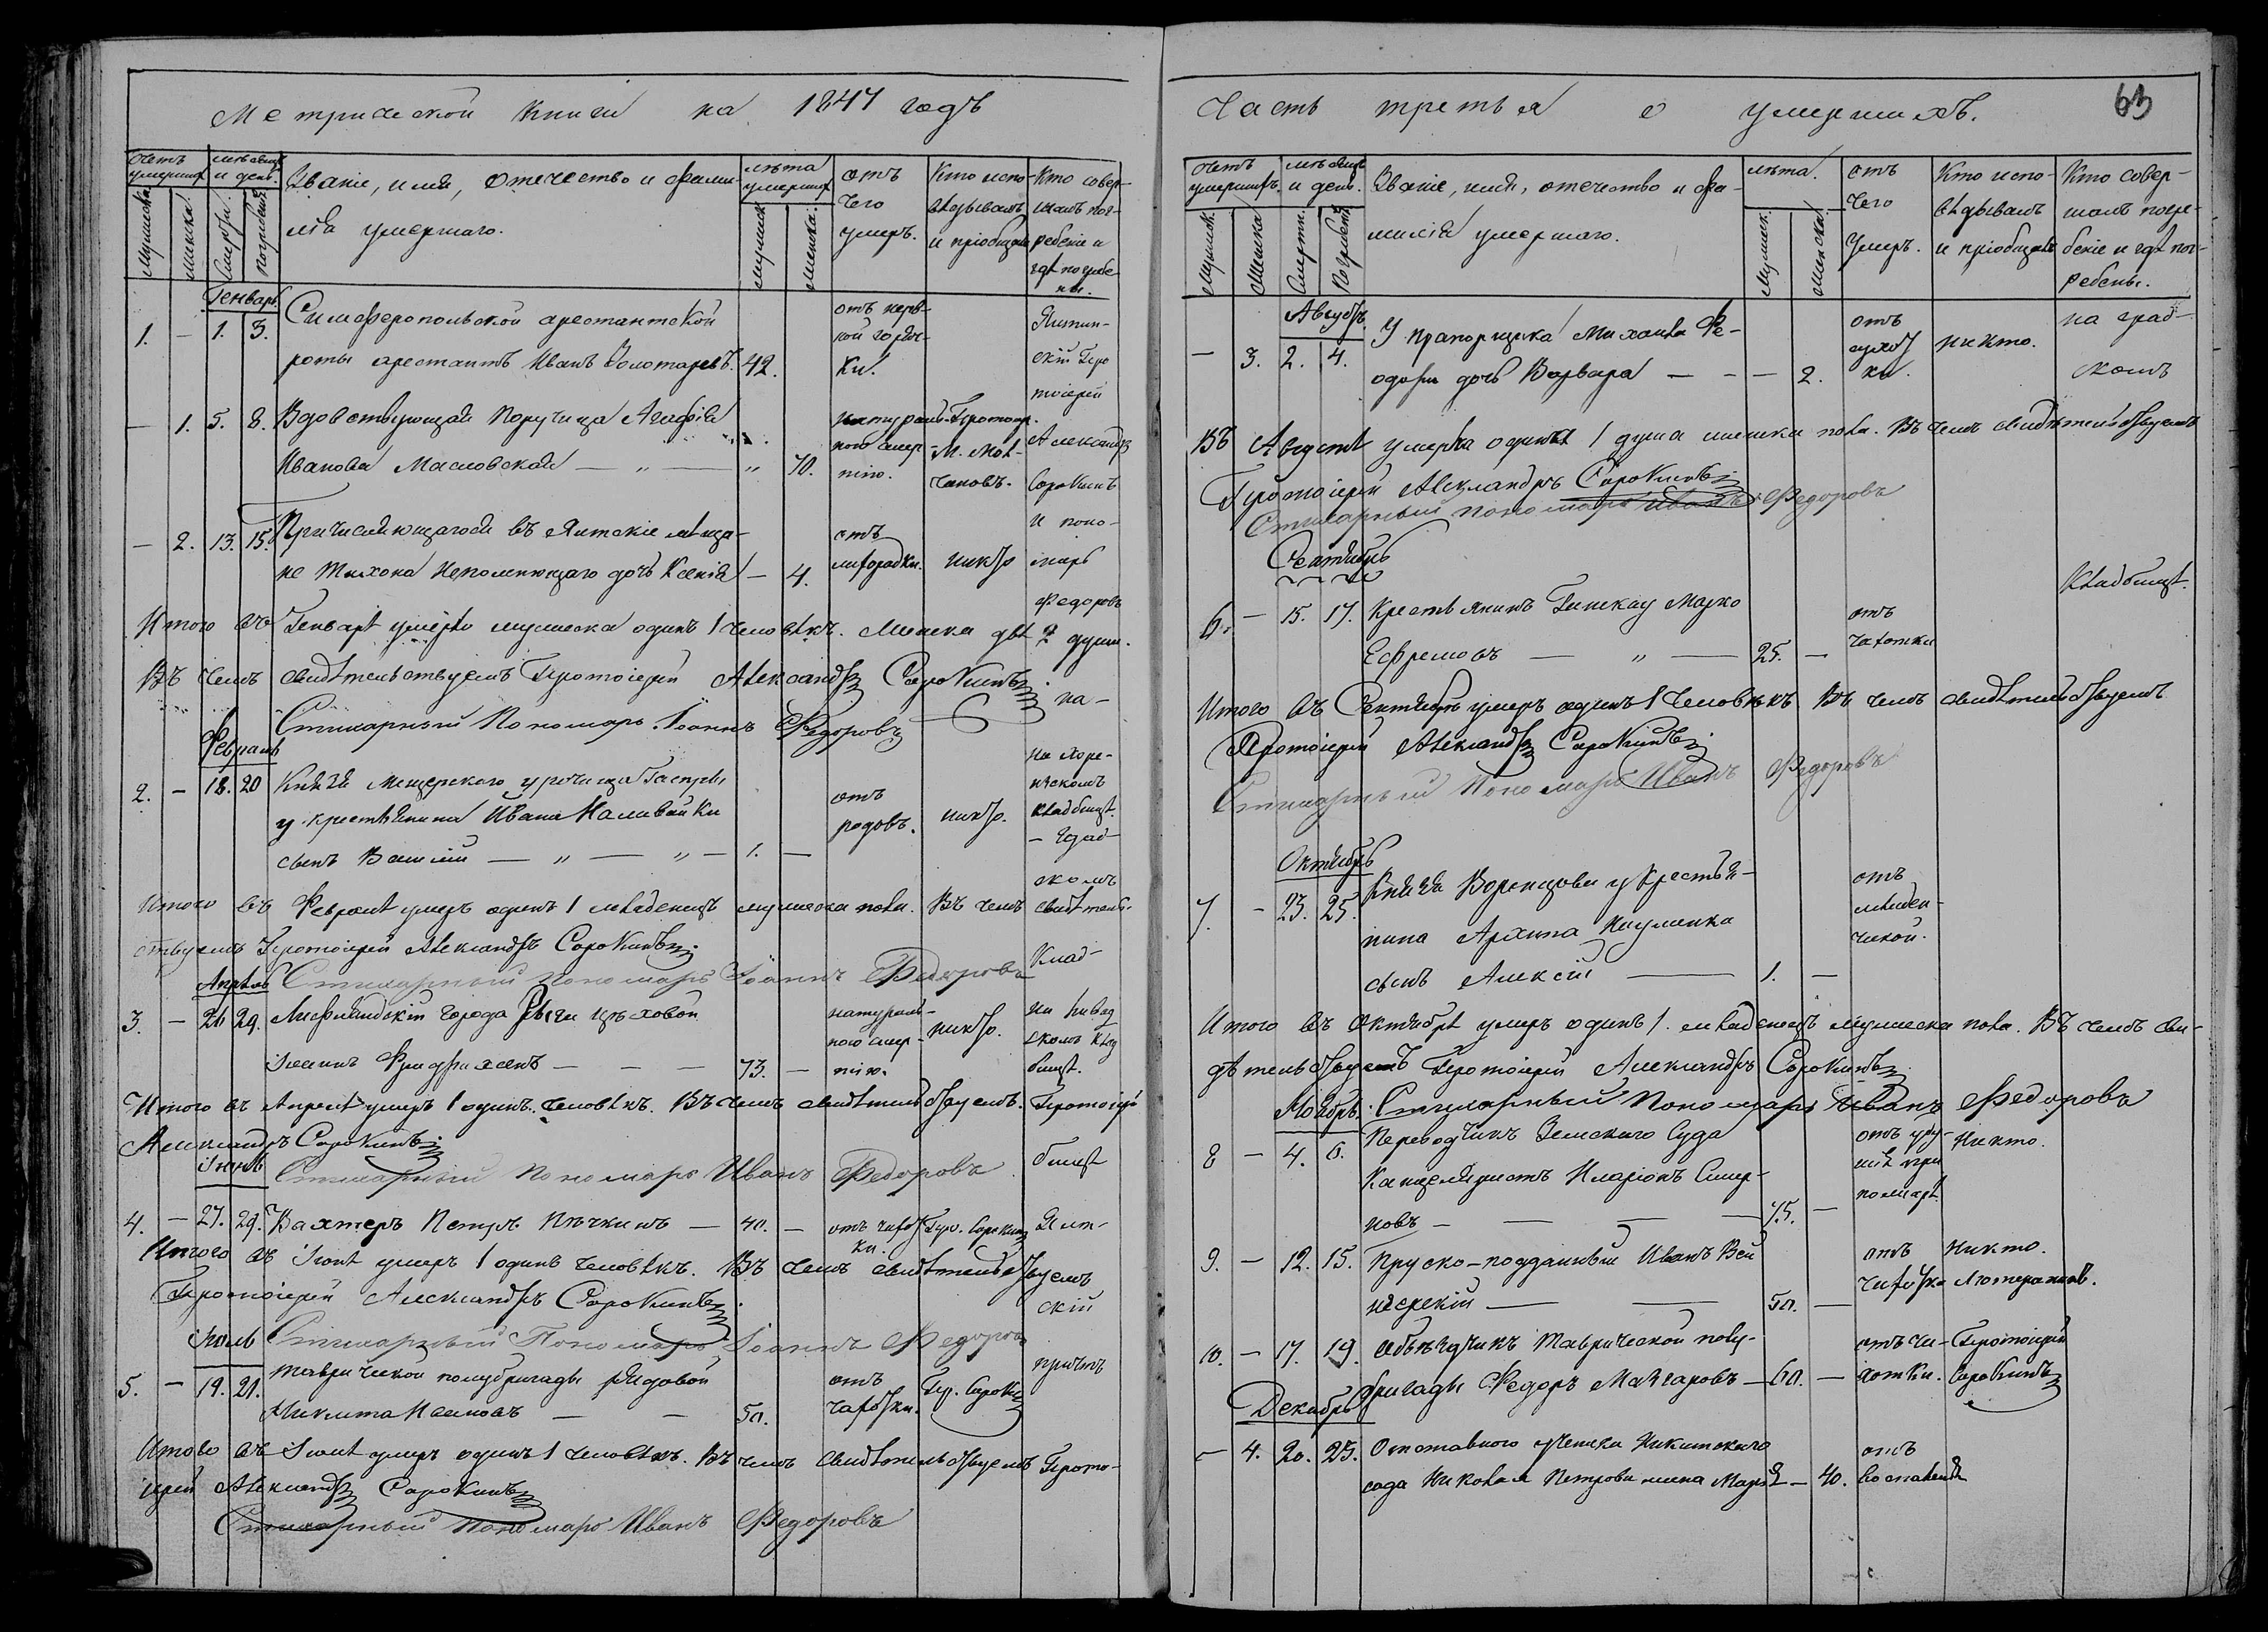 Метрической книги на 1847 годъ
счетъ умершихъ
мѣсяцъ и день.
Званіе, имя, отечество и фами-
лія умершаго.
лѣта умершихъ
отъ чего умеръ.
Кто испо-
вѣдывалъ
и пріобщалъ
Кто совер-
шалъ пог-
ребеніе и
гдѣ погребе-
ны.
Мужеска
Женска.
Смерти.
Погребенія
мужеск.
женска.
Генварь
1. — 1. 3. Симферопольской арестантской
роты арестантъ Иванъ Золотаревъ. 42.
отъ нерв-
ной горяч-
ки.
Ялтин-
скій Про
тоіерей
— 1. 5. 8. Вдовствующая Поручица Агафія
Иванова Масловская — „ — „ 70.
натураль-
ною смер-
тію.
Протоіер.
М. Мол-
чановъ.
Александръ
Сорокинъ
и поно-
— 2. 13. 15. Причисляющагося въ Ялтскіе мѣща-
не Тихона Непомнющаго дочь Ксенія — 4.
отъ
лихорадки. никто
марь
Федоровъ
Итого въ Генварѣ умерло мужеска одинъ 1 человѣкъ. Женска двѣ 2 души.
Въ чемъ свидѣтельствуемъ Протоіерей Александръ Сорокинъ
на-
Стихарный Пономарь Іоаннъ Федоровъ
Февраль
2. — 18. 20 Князя Мещерскаго урочища Гаспры
у крестьянина Ивана Наливайки
сынъ Василій — „ — „ — 1. —
отъ
родовъ. никто.
на Хоре-
изскомъ
кладбищѣ.
— Град-
скомъ
Итого въ Февралѣ умеръ одинъ 1 младенецъ мужеска пола. Въ чемъ свидѣтель-
ствуемъ Протоіерей Александръ Сорокинъ
Клад-
Апрѣль
Стихарный Пономарь Іоаннъ Федоровъ
3. — 26 29. Лифляндскій города Риги цеховой
Іоаннъ Фридрихсенъ — — — 73. —
натураль-
ною смер-
тію. никто.
на Ливад
скомъ клад
бищѣ.
Итого въ Апрелѣ умеръ 1 одинъ человѣкъ. Въ чемъ свидѣтельствуемъ. Протоіерей
Александръ Сорокинъ
Іюнь
Стихарный Пономарь Иванъ Федоровъ
бищѣ
4. — 27. 29. Вахтеръ Петръ Пѣчкинъ — 40. —
отъ чахот-
ки.
Про. Сорокинъ
Ялт-
Итого въ Іюнѣ умеръ 1 одинъ человѣкъ. Въ чемъ свидѣтельствуемъ
Протоіерей Александръ Сорокинъ
скій
Іюль
Стихарный Пономарь Іоаннъ Федоровъ
5. — 19. 21. Таврической полубригады рядовой
Никита Исаковъ — — 50.
отъ
чахотки.
Пр. Сорокинъ
причтъ
Итого въ Іюлѣ умеръ одинъ 1 человѣкъ. Въ чемъ свидѣтельствуемъ Прото-
іерей Александръ Сорокинъ
Стихарный Пономарь Иванъ Федоровъ
Часть третья о умершихъ. 63
счетъ умершихъ.
мѣсяцъ и день.
Званіе, имя, отечество и фа-
милія умершаго.
лѣта.
отъ чего умеръ.
Кто испо-
вѣдывалъ
и пріобщалъ
Кто совер-
шалъ погре-
беніе и гдѣ пог-
ребены.
Мужеск.
Женска
Смерти.
Погребенія
Мужеск.
Женска.
Августъ
— 3. 2. 4. У прапорщика Михаила Фе-
одори дочь Варвара — — — 2.
отъ
сухот
ки.
никто.
на град-
скомъ
Въ Августѣ умерла одинъ 1 душа женска пола. Въ чемъ свидѣтельствуемъ
Протоіерей Александръ Сорокинъ
Стихарный пономарь Иванъ Федоровъ
Сентябрь
6. — 15. 17. Крестьянинъ Марко
Ефремовъ — „ — 25. —
отъ
чахотки
кладбищѣ.
Итого въ Сентябрѣ умеръ одинъ 1 человѣкъ Въ чемъ свидѣтельствуемъ
Протоіерей Александръ Сорокинъ
Стихарный Пономарь Иванъ Федоровъ
Октябрь
7. — 23. 25. Князя Воронцова у крестья-
нина Архипа Науменка
сынъ Алексій — 1. —
отъ
младен-
ческой.
Итого въ Октябрѣ умеръ одинъ 1. младенецъ мужеска пола. Въ чемъ сви-
дѣтельствуемъ Протоіерей Александръ Сорокинъ
Ноябрь
Стихарный Пономарь Иванъ Федоровъ
8 — 4. 6. Переводчикъ Земскаго Суда
Канцеляристъ Иларіонъ Смир-
новъ — — — —
Никто.
9. — 12. 15. Пруско-подданный Иванъ — — 50. —
отъ
чахотка
Никто.
Лютеранинъ.
10. — 17. 19. Объѣздчикъ Таврической полу-
бригады Федоръ Макаровъ — 60. —
отъ ча-
хотки.
Протоіерей
Сорокинъ
Декабрь
— 4. 20. 23. Отставного ученика Никитскаго
сада Николая Петрова жена Марія — 40.
отъ
воспаленія